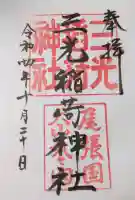 奉拝
三光稲荷神社
三光稲荷神社
尾張国
令和四年十月二十日